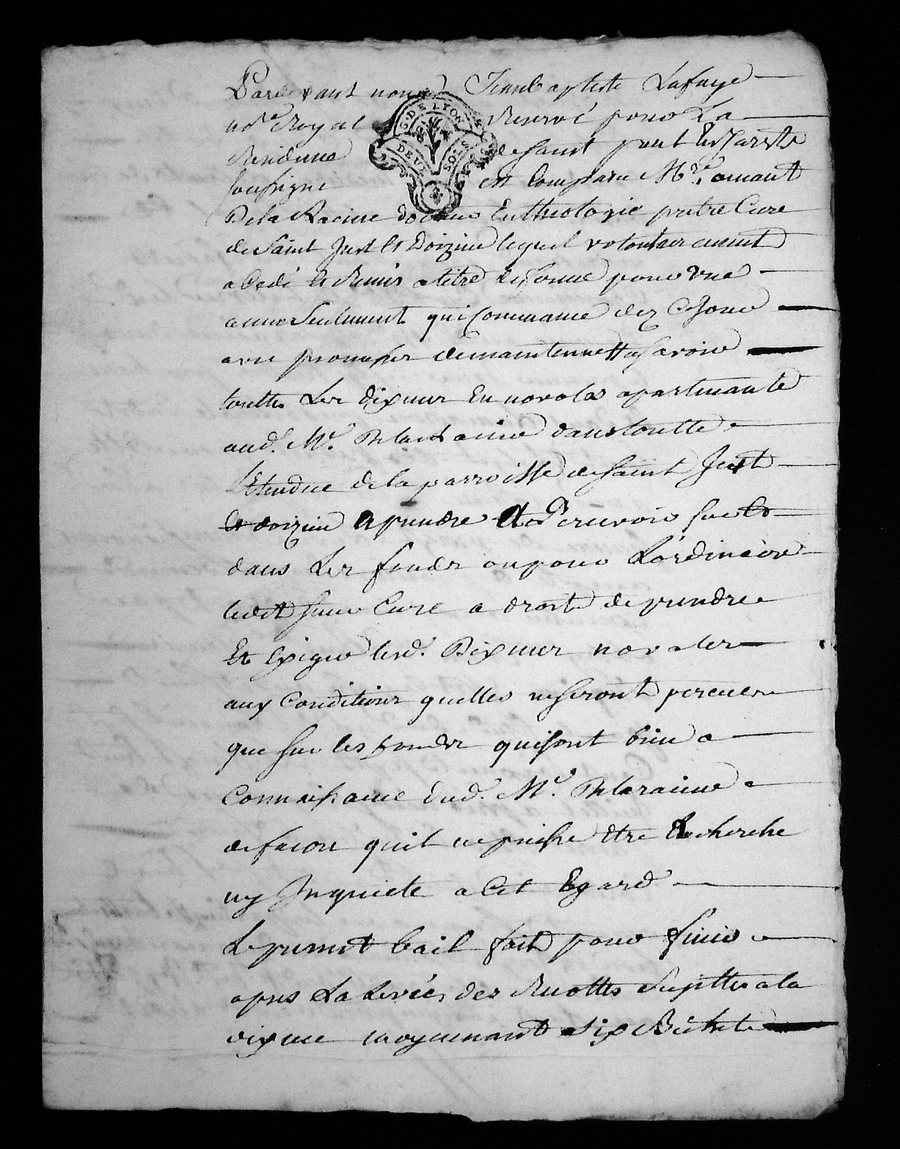 Pardevant nous Jean baptiste Lafaye
no.re Royal Reservé pour La
G. DE LYON
DEUX SOLS
Residence de Saint
soussigné est Comparu M.re amant
De la Racine docteur En theologie pretre Cure
de Saint Just Et Doizieu lequel volontairement
a Cedé et Remis a titre de ferme pour une
année seulement qui Commance dez Ce Jour
avec promesse de maintenue a savoir
touttes Les dixmes En novales apartenante
aud. M.r Delaracine dans toutte
L'Etendue de la parroisse de Saint Just
Et doizieu a prendre Et Percevoir
dans Les fonds ou pour L'ordinaire
ledit sieur Curé a droit de prendre
Et Exiger lesd. Dixmes novales
aux Conditions quelles ne seront percues
que sur les fonds qui sont bien a
Connaissance dud. M.r Delaracine
de facon quil ne puisse Etre Recherche
ny Inquieté a Cet Egard
Le present bail fait pour finir
apres La Levée des Recoltes sujettes a la
dixme moyennant six Bichets